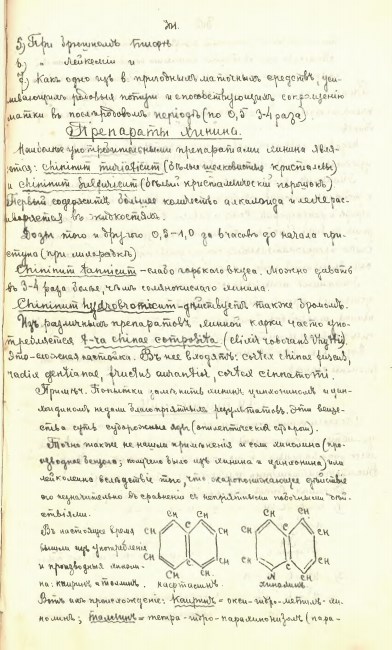 5) При брюшномъ тифѣ
6) " Лейкеміи и
7) Какъ одно изъ пригодныхъ маточныхъ средствъ, уси-
ливающихъ родовыя потуги и способствующихъ сокращенію
матки въ послѣродовомъ періодѣ (по 0,5 3-4 раза)
Препараты хинина.
Наиболѣе употребительными препаратами хинина явля-
ются: chininum muriaticum (бѣлые шелковистые кристаллы)
и chininum sulfuricum (бѣлый кристаллическій порошокъ)
Первый содержитъ большее количество алкалоида и легче рас-
творяется въ жидкостяхъ.
Дозы того и другого 0,3-1,0 за 6 часовъ до начала при-
ступа (при лихорадкѣ)
Chininum tannicum - слабо горькаго вкуса. Можно давать
въ 3-4 раза болѣе, чѣмъ солянокислаго хинина.
Chininum hydrobromicum - дѣйствуетъ также бромомъ.
Изъ различныхъ препаратовъ хинной корки часто упо-
требляется t-ra chinae composita (elixir roborans Whytti).
Это - сложная настойка. Въ нее входятъ: cortex chinae fuscus,
radix gentianae, fructus aurantior, cortex cinnamomi.
Примѣч. Попытки замѣнить хининъ цинхониномъ и цин-
хонидиномъ не дали благопріятныхъ результатовъ. Эти веще-
ства суть судорожные яды (эпилептическій старой).
Точно также не нашли примѣненія и соли хинолина (про-
изводное бензола; получено было изъ хинина и цинхонина) или
лейколина вслѣдствіе того, что жаропонижающее дѣйствіе
его незначительно въ сравненіи съ непріятными побочными дѣй-
ствіями.
Въ настоящее время
вышли изъ употребленія
и производныя хиноли-
на: каиринъ и таллинъ.
CH CH
CH C CH
CH C CH
CH CH
нафталинъ.
CH CH
CH C CH
CH C CH
CH N
хинолинъ
Вотъ ихъ происхожденіе: Каиринъ = окси-гидро-метилъ-хи-
нолинъ; таллинъ = тетра-гидро-парахинонизолъ (пара-